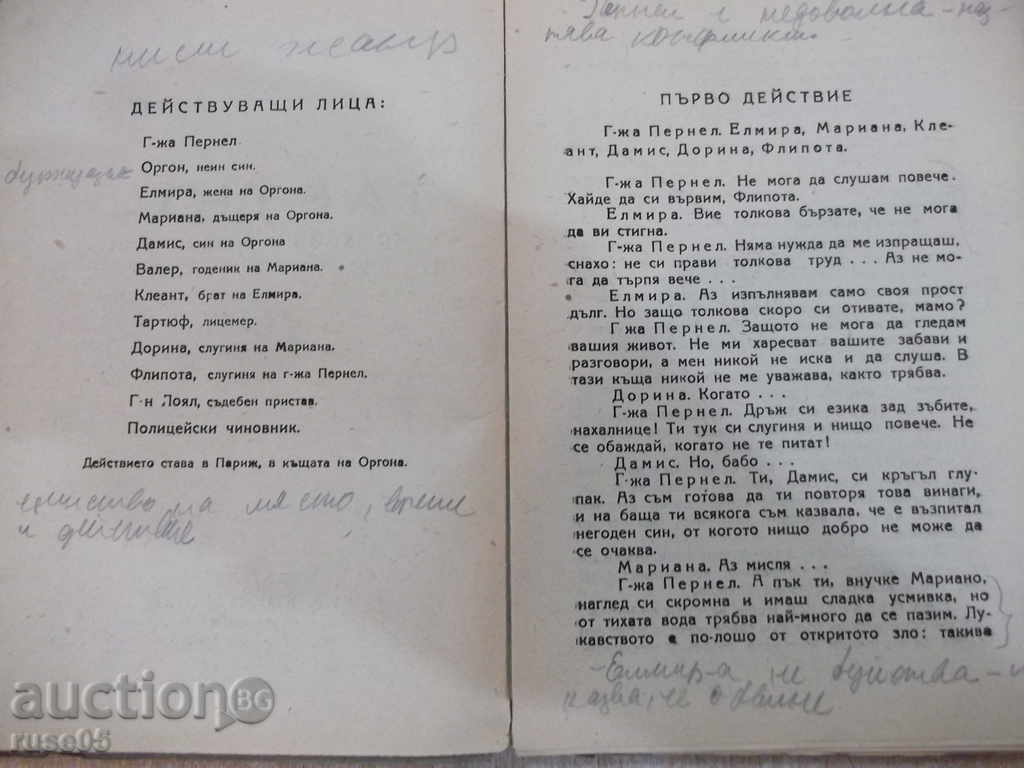 нисш жанр
ДЕЙСТВУВАЩИ ЛИЦА:
Г-жа Пернел
Оргон, неин син.
Елмира, жена на Оргона.
Мариана, дъщеря на Оргона.
Дамис, син на Оргона
Валер, годеник на Мариана.
Клеант, брат на Елмира.
Тартюф, лицемер.
Дорина, слугиня на Мариана.
Флипота, слугиня на г-жа Пернел.
Г-н Лоял, съдебен пристав.
Полицейски чиновник.
Действието става в Париж, в къщата на Оргона.
единство на място, време
и действие
auction BG
ruse05
недоволна
конфликт.
ПЪРВО ДЕЙСТВИЕ
Г-жа Пернел. Елмира, Мариана, Кле-
ант, Дамис, Дорина, Флипота.
Г-жа Пернел. Не мога да слушам повече.
Хайде да си вървим, Флипота.
Елмира. Вие толкова бързате, че не мога
да ви стигна.
Г-жа Пернел. Няма нужда да ме изпращаш,
снахо: не си прави толкова труд . . . Аз не мо-
га да търпя вече . . .
Елмира. Аз изпълнявам само своя прост
дълг. Но защо толкова скоро си отивате, мамо?
Г жа Пернел. Защото не мога да гледам
вашия живот. Не ми харесват вашите забави и
разговори, а мен никой не иска и да слуша. В
тази къща никой не ме уважава, както трябва.
Дорина. Когато . . .
Г-жа Пернел. Дръж си езика зад зъбите,
нахалнице! Ти тук си слугиня и нищо повече. Не
се обаждай, когато не те питат!
Дамис. Но, бабо . . .
Г-жа Пернел. Ти, Дамис, си кръгъл глу-
пак. Аз съм готова да ти повторя това винаги,
и на баща ти всякога съм казвала, че е възпитал
негоден син, от когото нищо добро не може да
се очаква.
Мариана. Аз мисля . . .
Г-жа Пернел. А пък ти, внучке Мариано,
наглед си скромна и имаш сладка усмивка, но
от тихата вода трябва най-много да се пазим. Лу-
кавството е по-лошо от откритото зло: такива
не
че